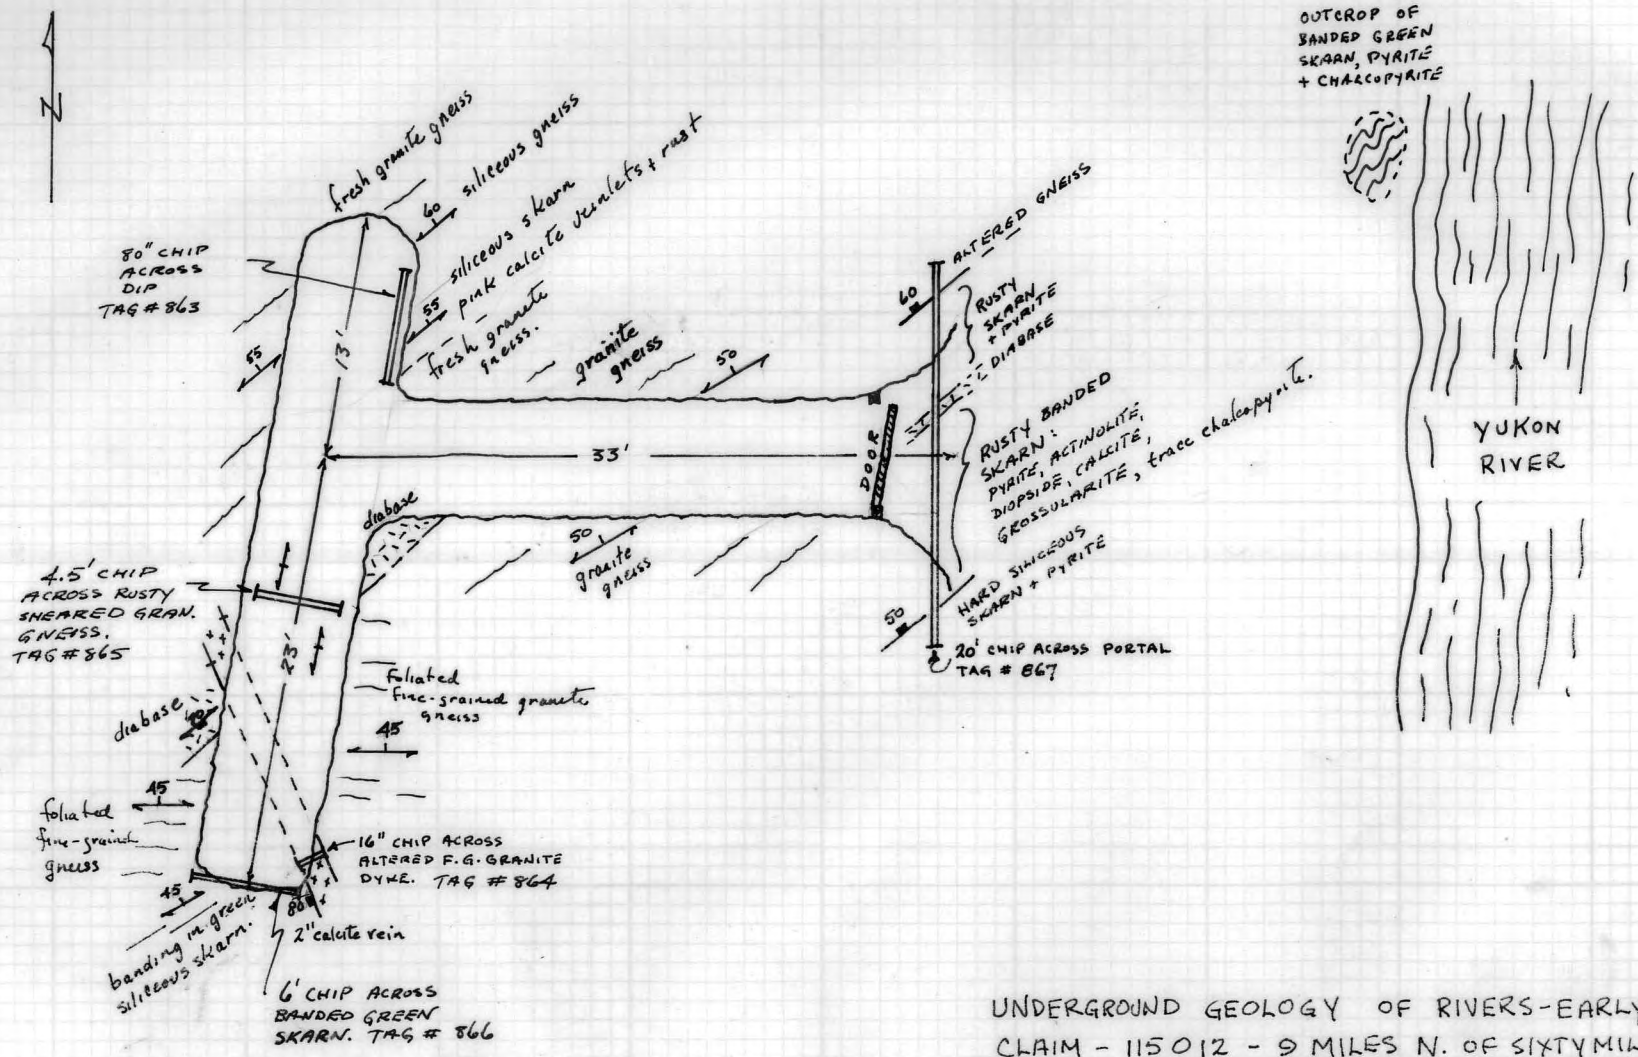 N
OUTCROP OF
BANDED GREEN
SKARN, PYRITE
+ CHALCOPYRITE
fresh granite gneiss
60
siliceous gneiss
siliceous skarn
pink calcite veinlets + rust
55
fresh granite
gneiss.
80" CHIP
ACROSS
DIP
TAG # 863
55
13'
granite
gneiss
50
ALTERED GNEISS
60
RUSTY
SKARN
+ PYRITE
DIABASE
33'
DOOR
RUSTY BANDED
SKARN:
PYRITE, ACTINOLITE,
DIOPSIDE, CALCITE,
GROSSULARITE, trace chalcopyrite.
HARD SILICEOUS
SKARN + PYRITE
50
20' CHIP ACROSS PORTAL
TAG # 867
YUKON
RIVER
diabase
50
granite
gneiss
4.5' CHIP
ACROSS RUSTY
SHEARED GRAN.
GNEISS.
TAG # 865
23'
foliated
fine-grained granite
gneiss
45
diabase
45
foliated
fine-grained
gneiss
16" CHIP ACROSS
ALTERED F.G. GRANITE
DYKE. TAG # 864
45
80
banding in green
siliceous skarn.
2" calcite vein
6' CHIP ACROSS
BANDED GREEN
SKARN. TAG # 866
UNDERGROUND GEOLOGY OF RIVERS-EARLY
CLAIM - 115 O 12 - 9 MILES N. OF SIXTYMIL